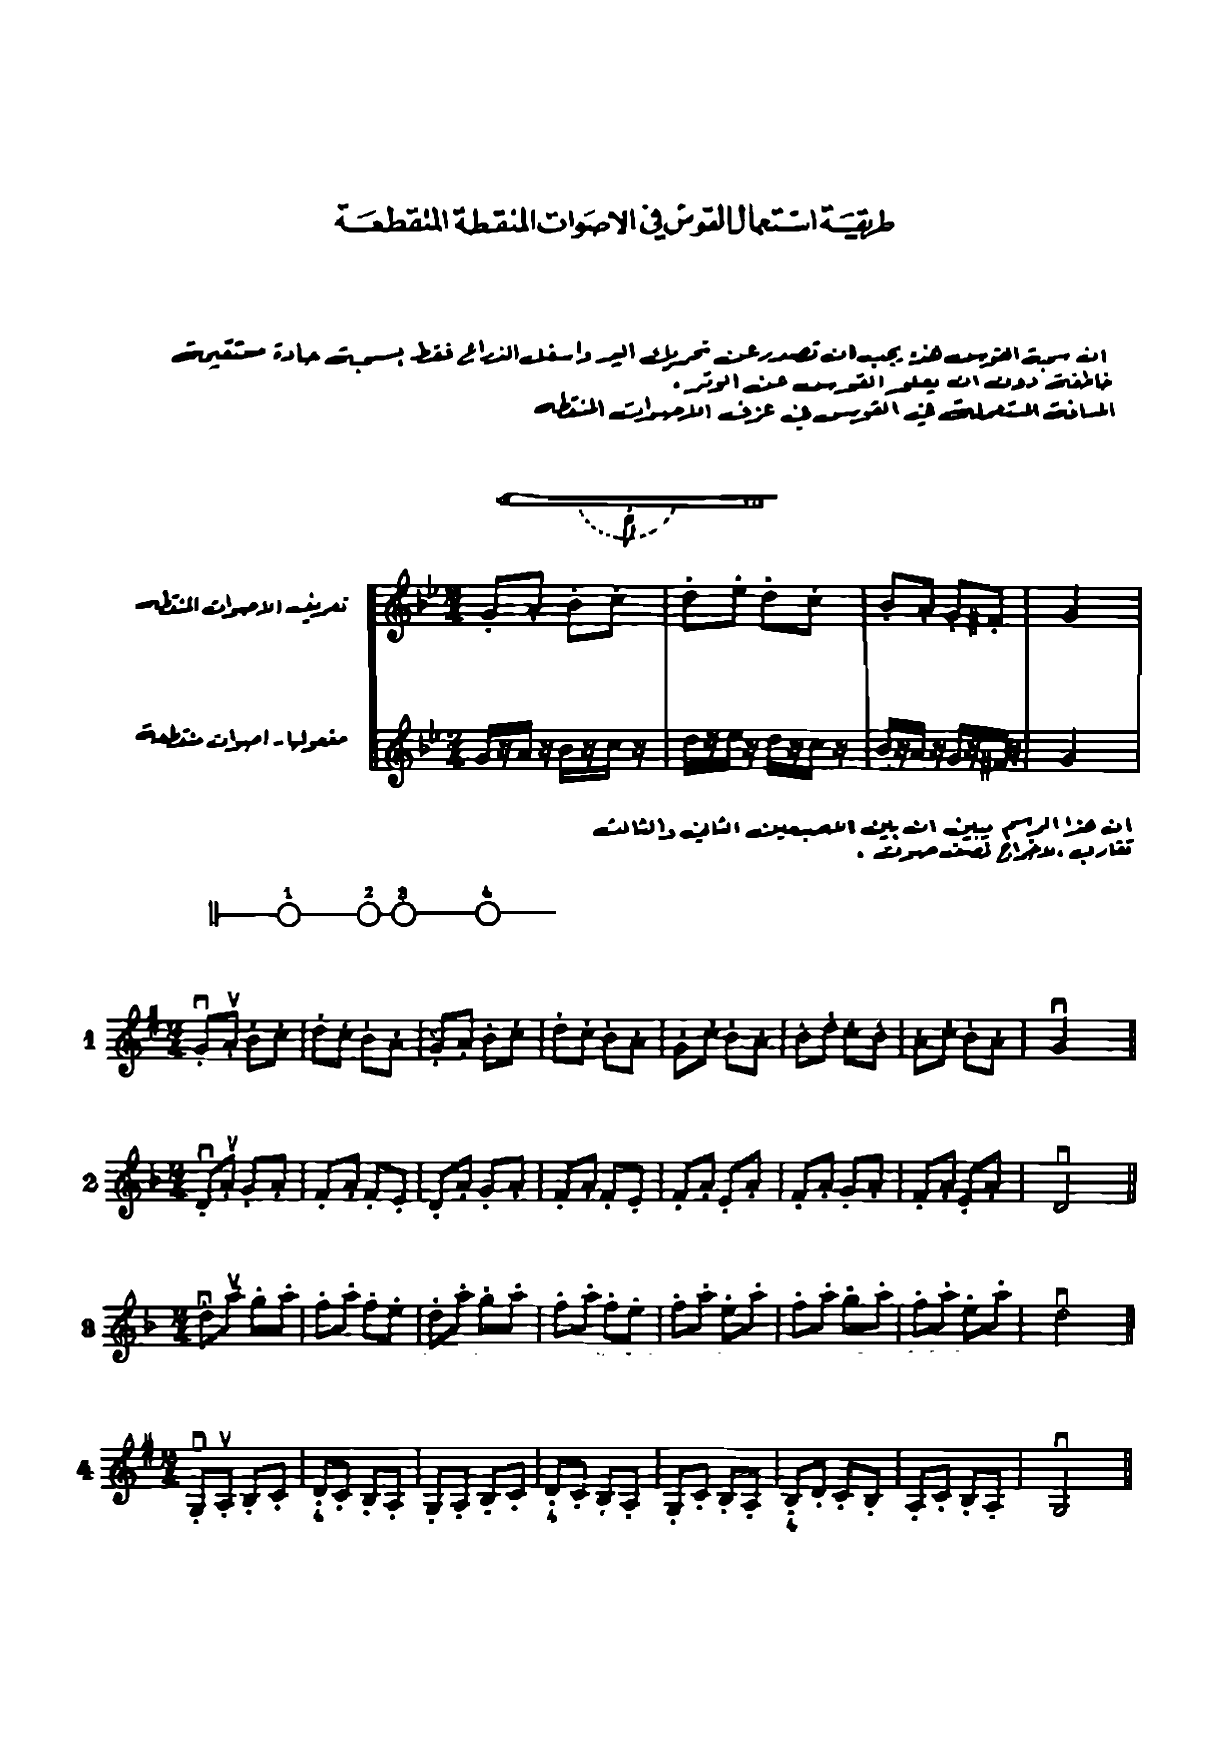 طريقة استعمال القوس في الاصوات المنقطة المتقطعة
ان سحبة القوس هذه يجب ان تصدر عن تحريك اليد واسفل الذراع فقط بسحبة حادة مستقيمة
خاطفة دون ان يعلو القوس عن الوتر .
المسافة المستعملة في القوس في عزف الاصوات المنقطه
تعريف الاصوات المنقطه
مفعولها - اصوات متقطعة
ان هذا الرسم يبين ان بين الاصبعين الثاني والثالث
تقارب . لاخراج نصف صوت .
1 2 3 4
1
2
3
4
4 4 4